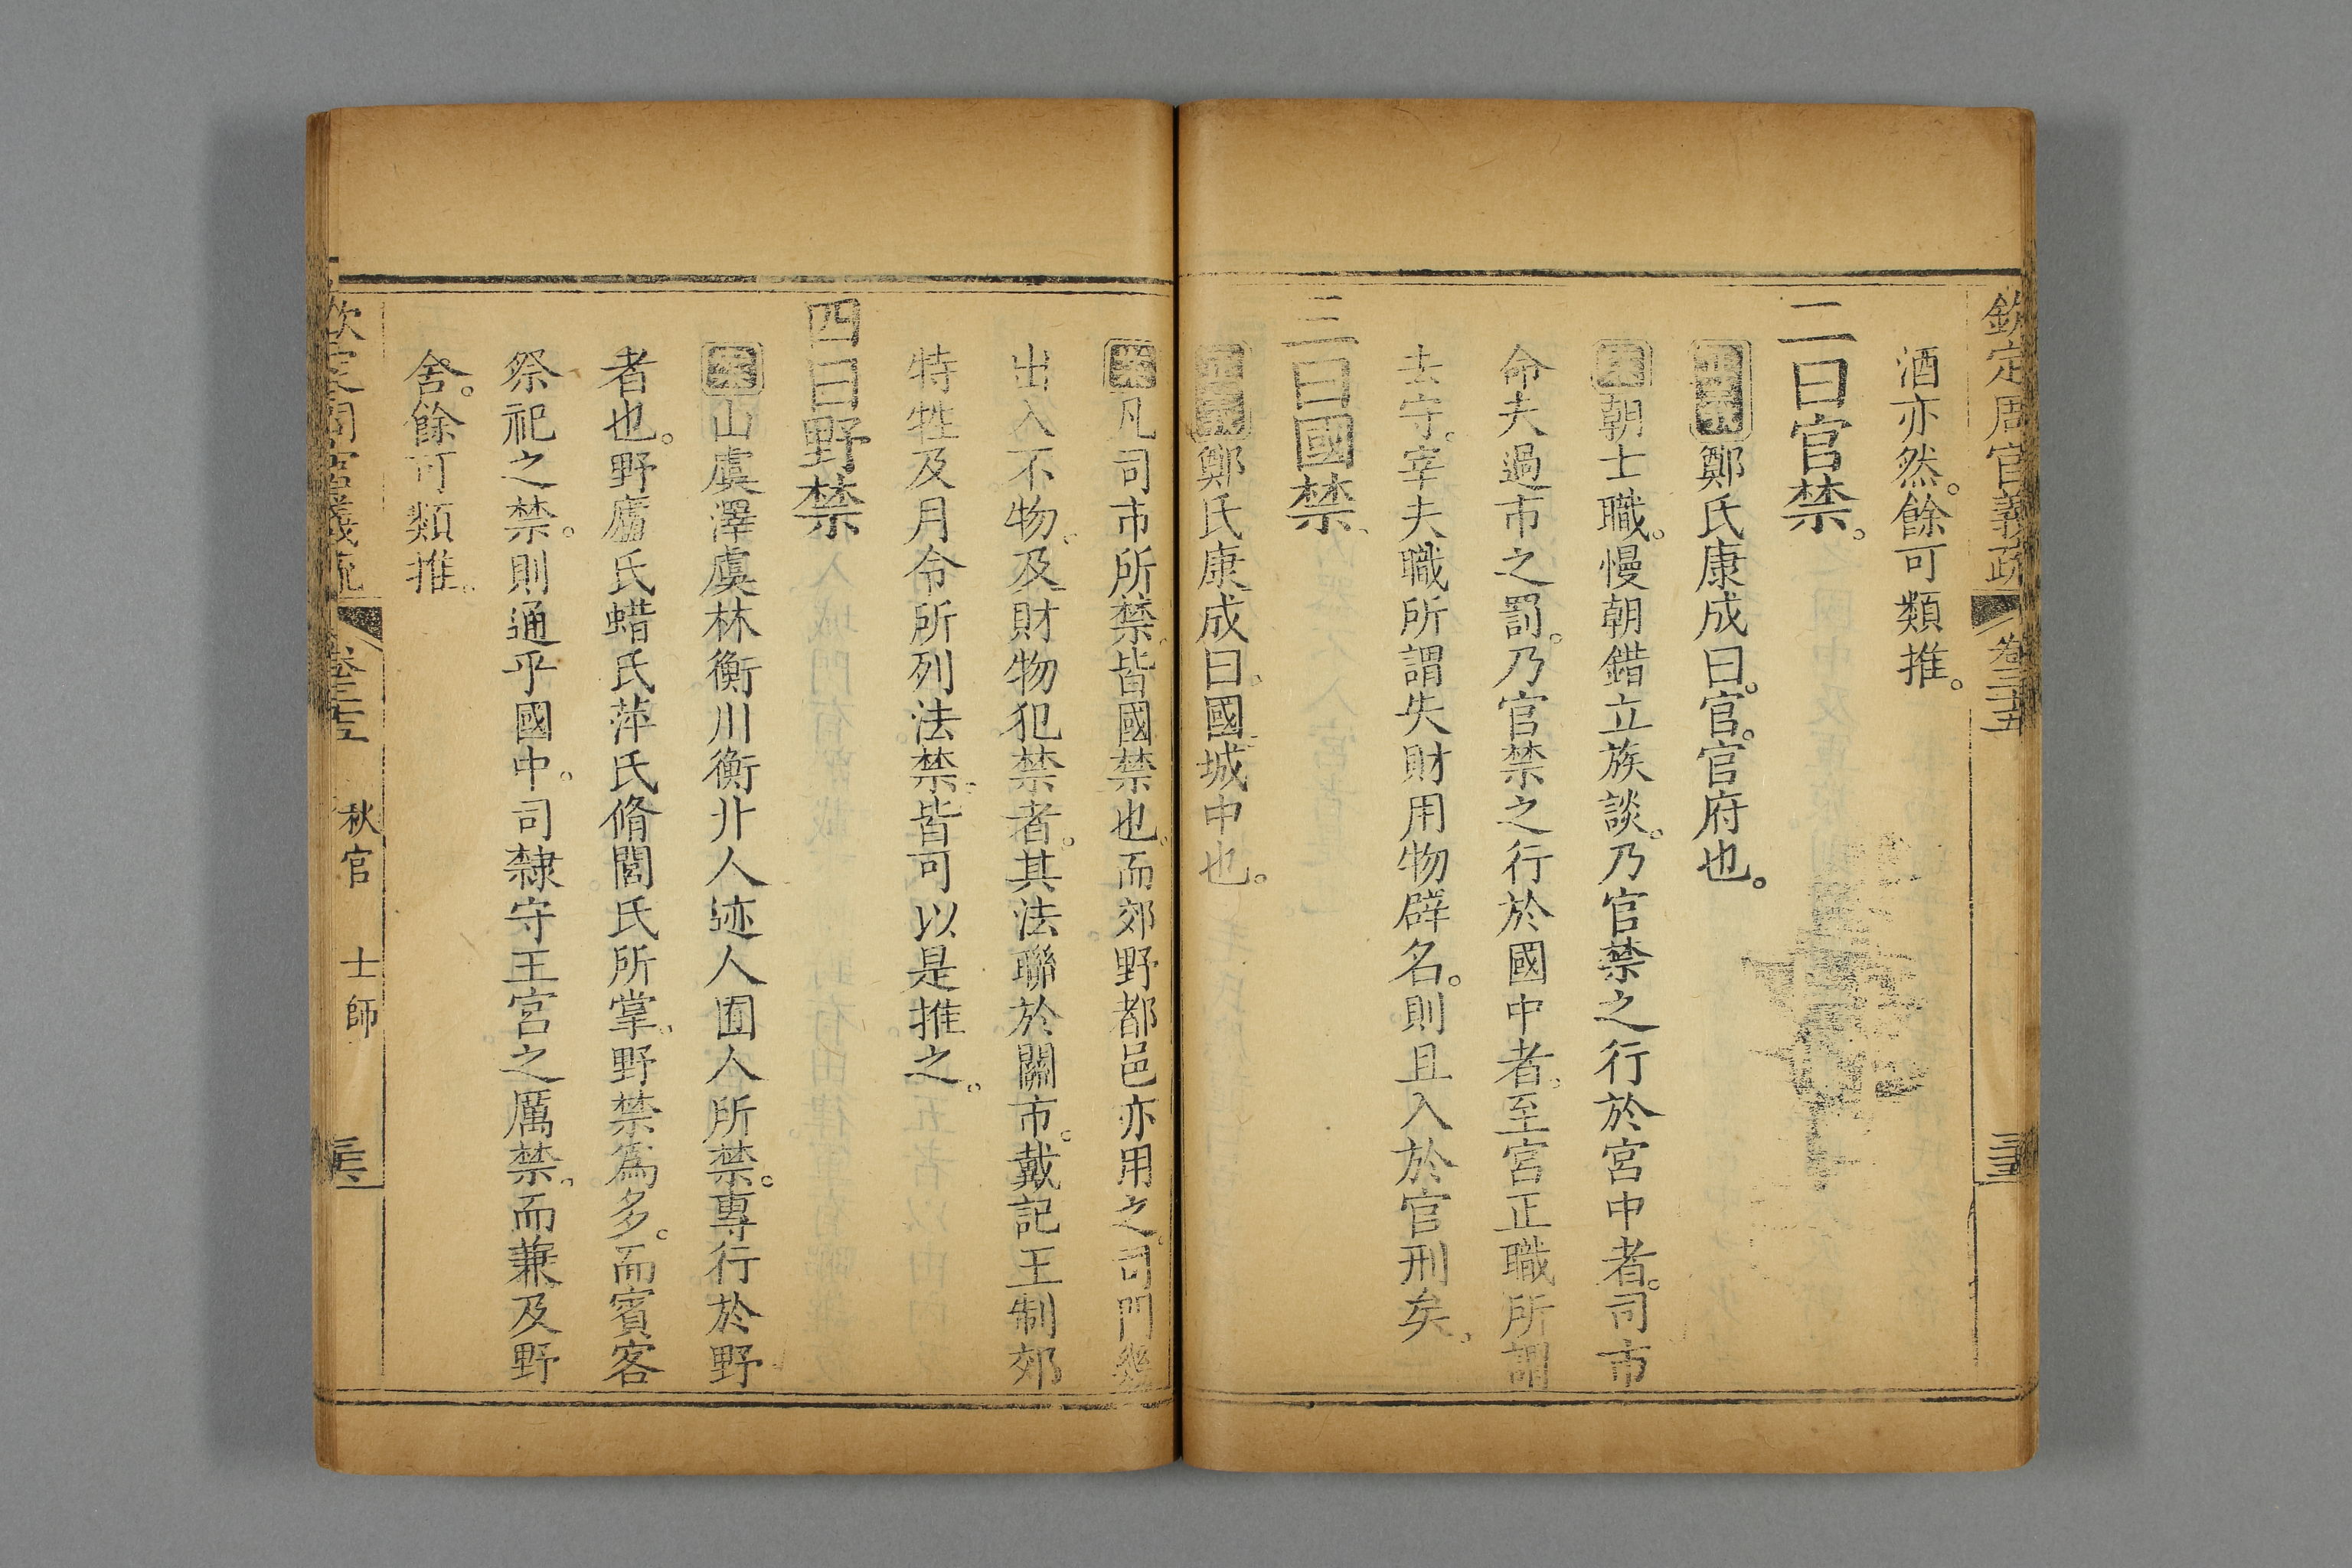 欽定周官義疏 卷三十五
酒亦然。餘可類推。
二曰官禁。
正義鄭氏康成曰。官。官府也。
案朝士職。慢朝錯立族談。乃官禁之行於宮中者。司市
命夫過市之罰。乃官禁之行於國中者。至宮正職所謂
去守。宰夫職所謂失財用物辟名。則且入於官刑矣。
三曰國禁。
正義鄭氏康成曰。國城中也。
案凡司市所禁。皆國禁也。而郊野都邑亦用之。司門幾
出入不物。及財物犯禁者。其法聯於關市。戴記王制郊
特牲及月令所列法禁。皆可以是推之。
四曰野禁
案山虞澤虞林衡川衡丱人迹人囿人所禁。專行於野
者也。野廬氏蜡氏萍氏脩閭氏所掌。野禁爲多。而賓客
祭祀之禁。則通乎國中。司隸守王宮之厲禁。而兼及野
舍。餘可類推。
欽定周官義疏 卷三十五 秋官 士師